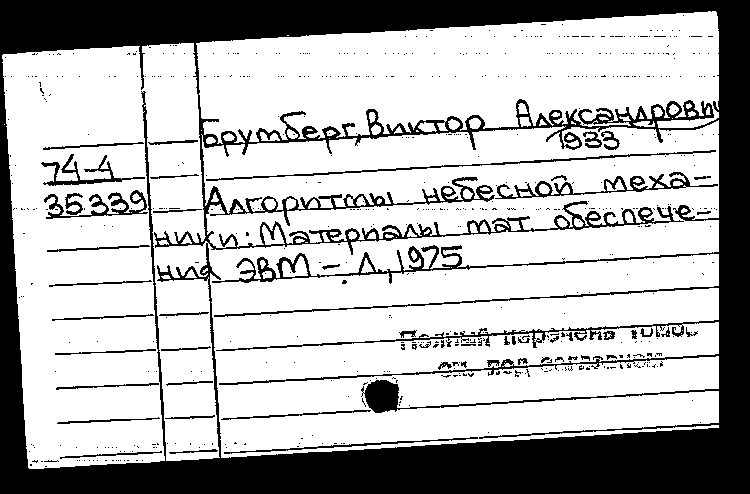 Брумберг, Виктор Александрович
1933
74-4
35339
Алгоритмы небесной меха-
ники: Материалы мат. обеспече-
ния ЭВМ.-Л., 1975.
Полный перечень томов
см. под заглавием